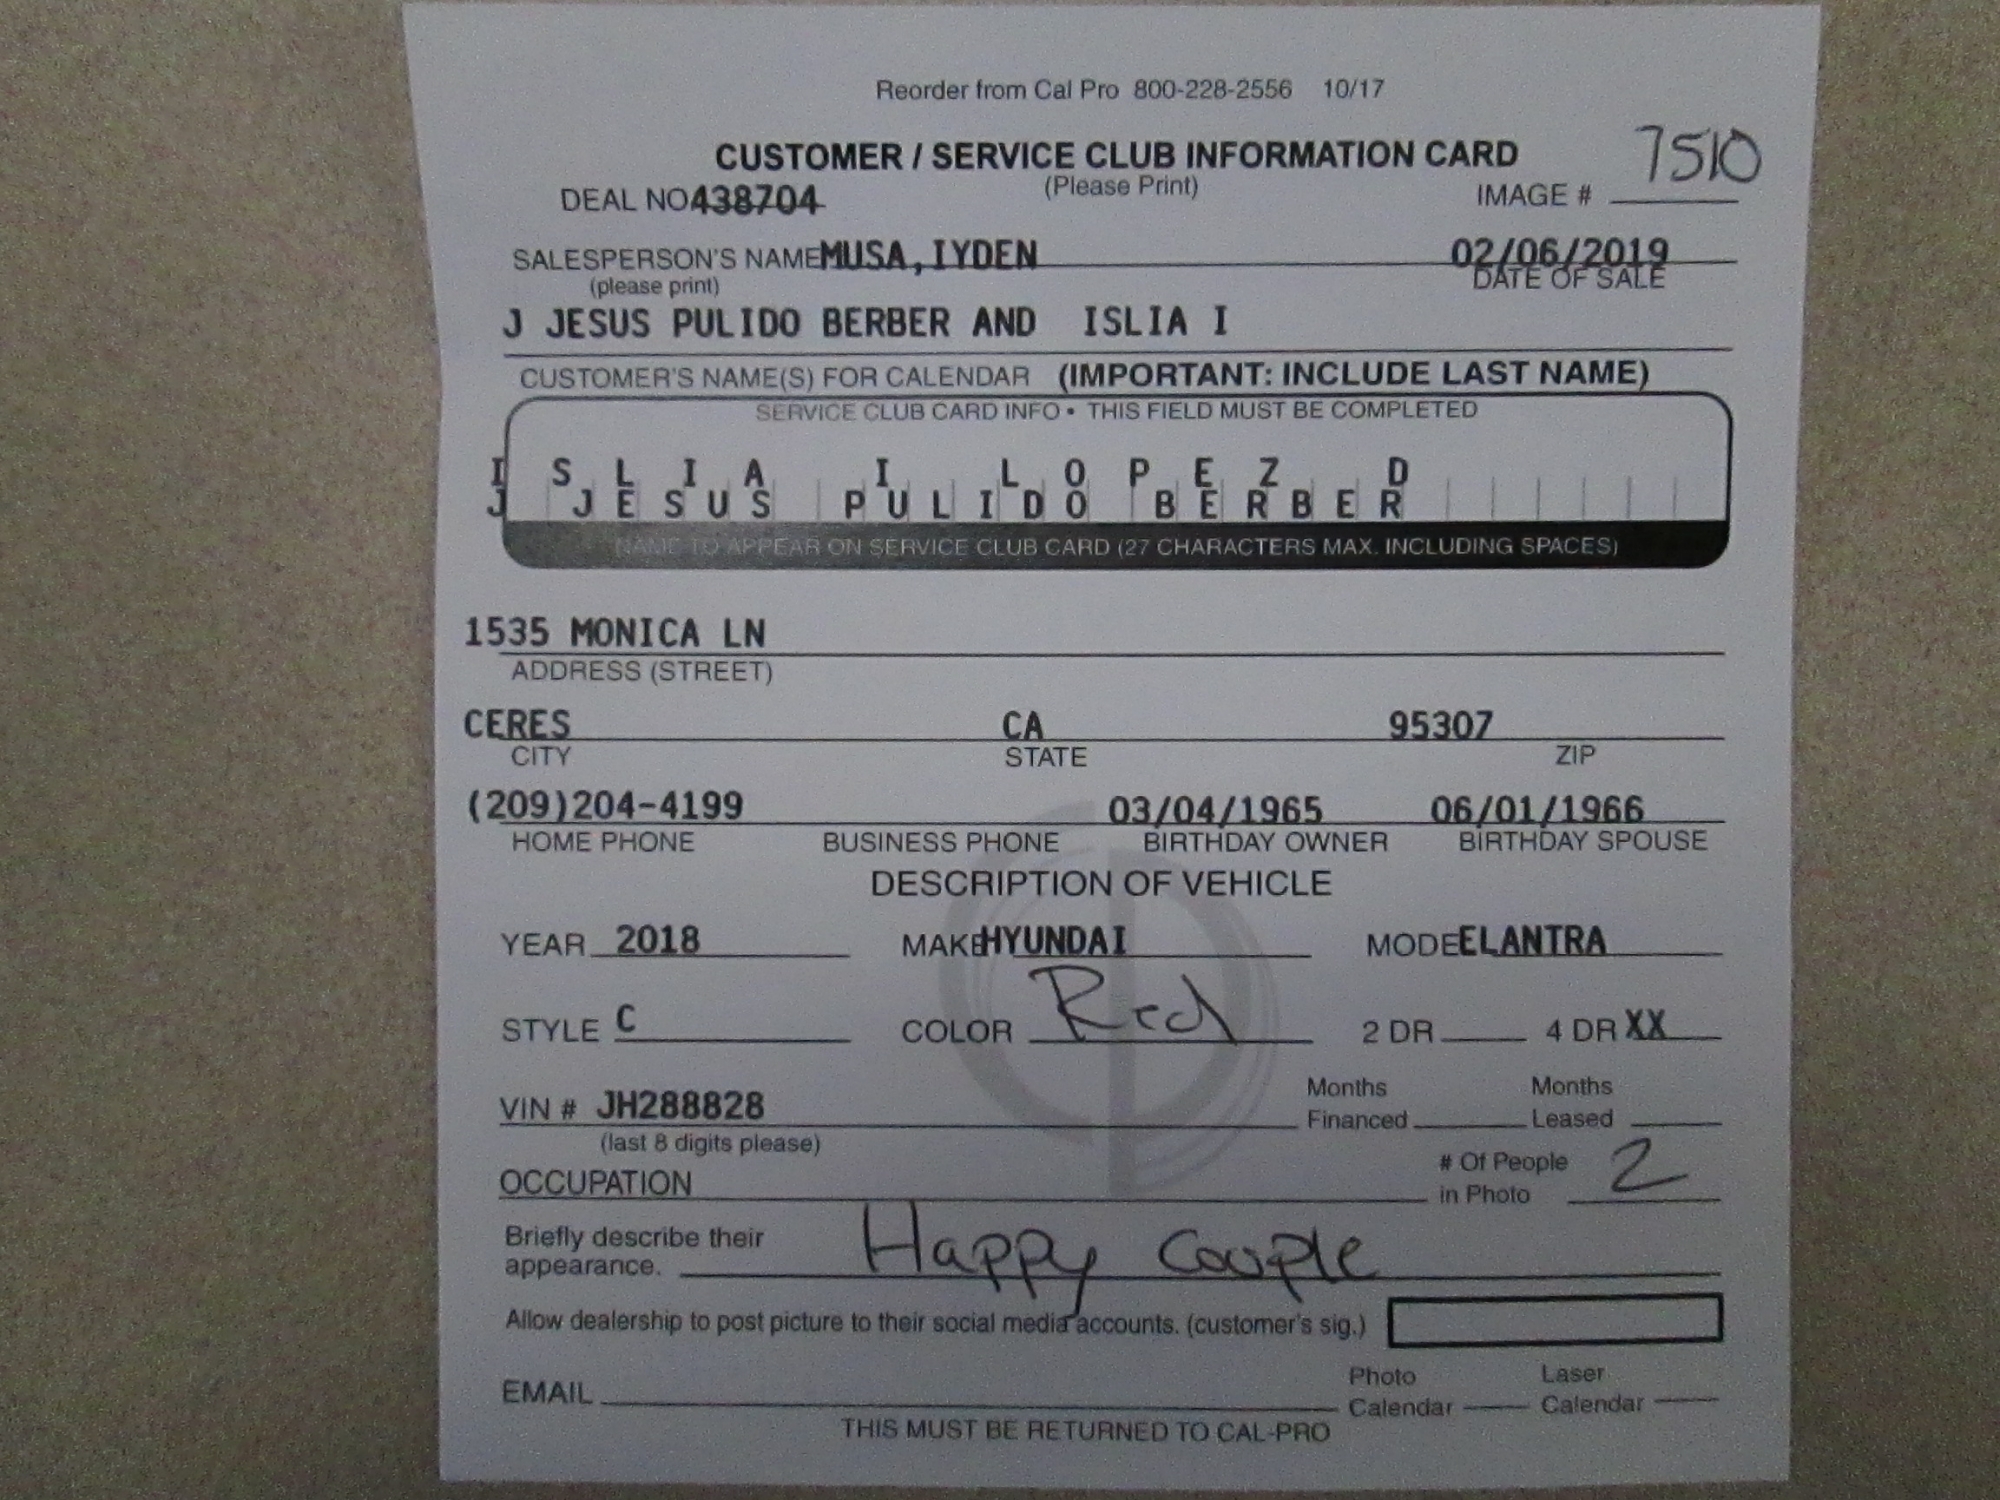 Reorder from Cal Pro 800-228-2556 10/17
CUSTOMER / SERVICE CLUB INFORMATION CARD 7510
DEAL NO 438704 (Please Print) IMAGE #
SALESPERSON'S NAME MUSA, IYDEN 02/06/2019
(please print) DATE OF SALE
J JESUS PULIDO BERBER AND ISLIA I
CUSTOMER'S NAME(S) FOR CALENDAR (IMPORTANT: INCLUDE LAST NAME)
SERVICE CLUB CARD INFO • THIS FIELD MUST BE COMPLETED
I S L I A I L O P E Z D
J JESUS PULIDO BERBER
NAME TO APPEAR ON SERVICE CLUB CARD (27 CHARACTERS MAX. INCLUDING SPACES)
1535 MONICA LN
ADDRESS (STREET)
CERES CA 95307
CITY STATE ZIP
(209)204-4199 03/04/1965 06/01/1966
HOME PHONE BUSINESS PHONE BIRTHDAY OWNER BIRTHDAY SPOUSE
DESCRIPTION OF VEHICLE
YEAR 2018 MAKE HYUNDAI MODE ELANTRA
STYLE C COLOR Red 2 DR 4 DR XX
VIN # JH288828 Months Financed Months Leased
(last 8 digits please)
OCCUPATION # Of People in Photo 2
Briefly describe their appearance. Happy Couple
Allow dealership to post picture to their social media accounts. (customer's sig.)
EMAIL Photo Calendar Laser Calendar
THIS MUST BE RETURNED TO CAL-PRO